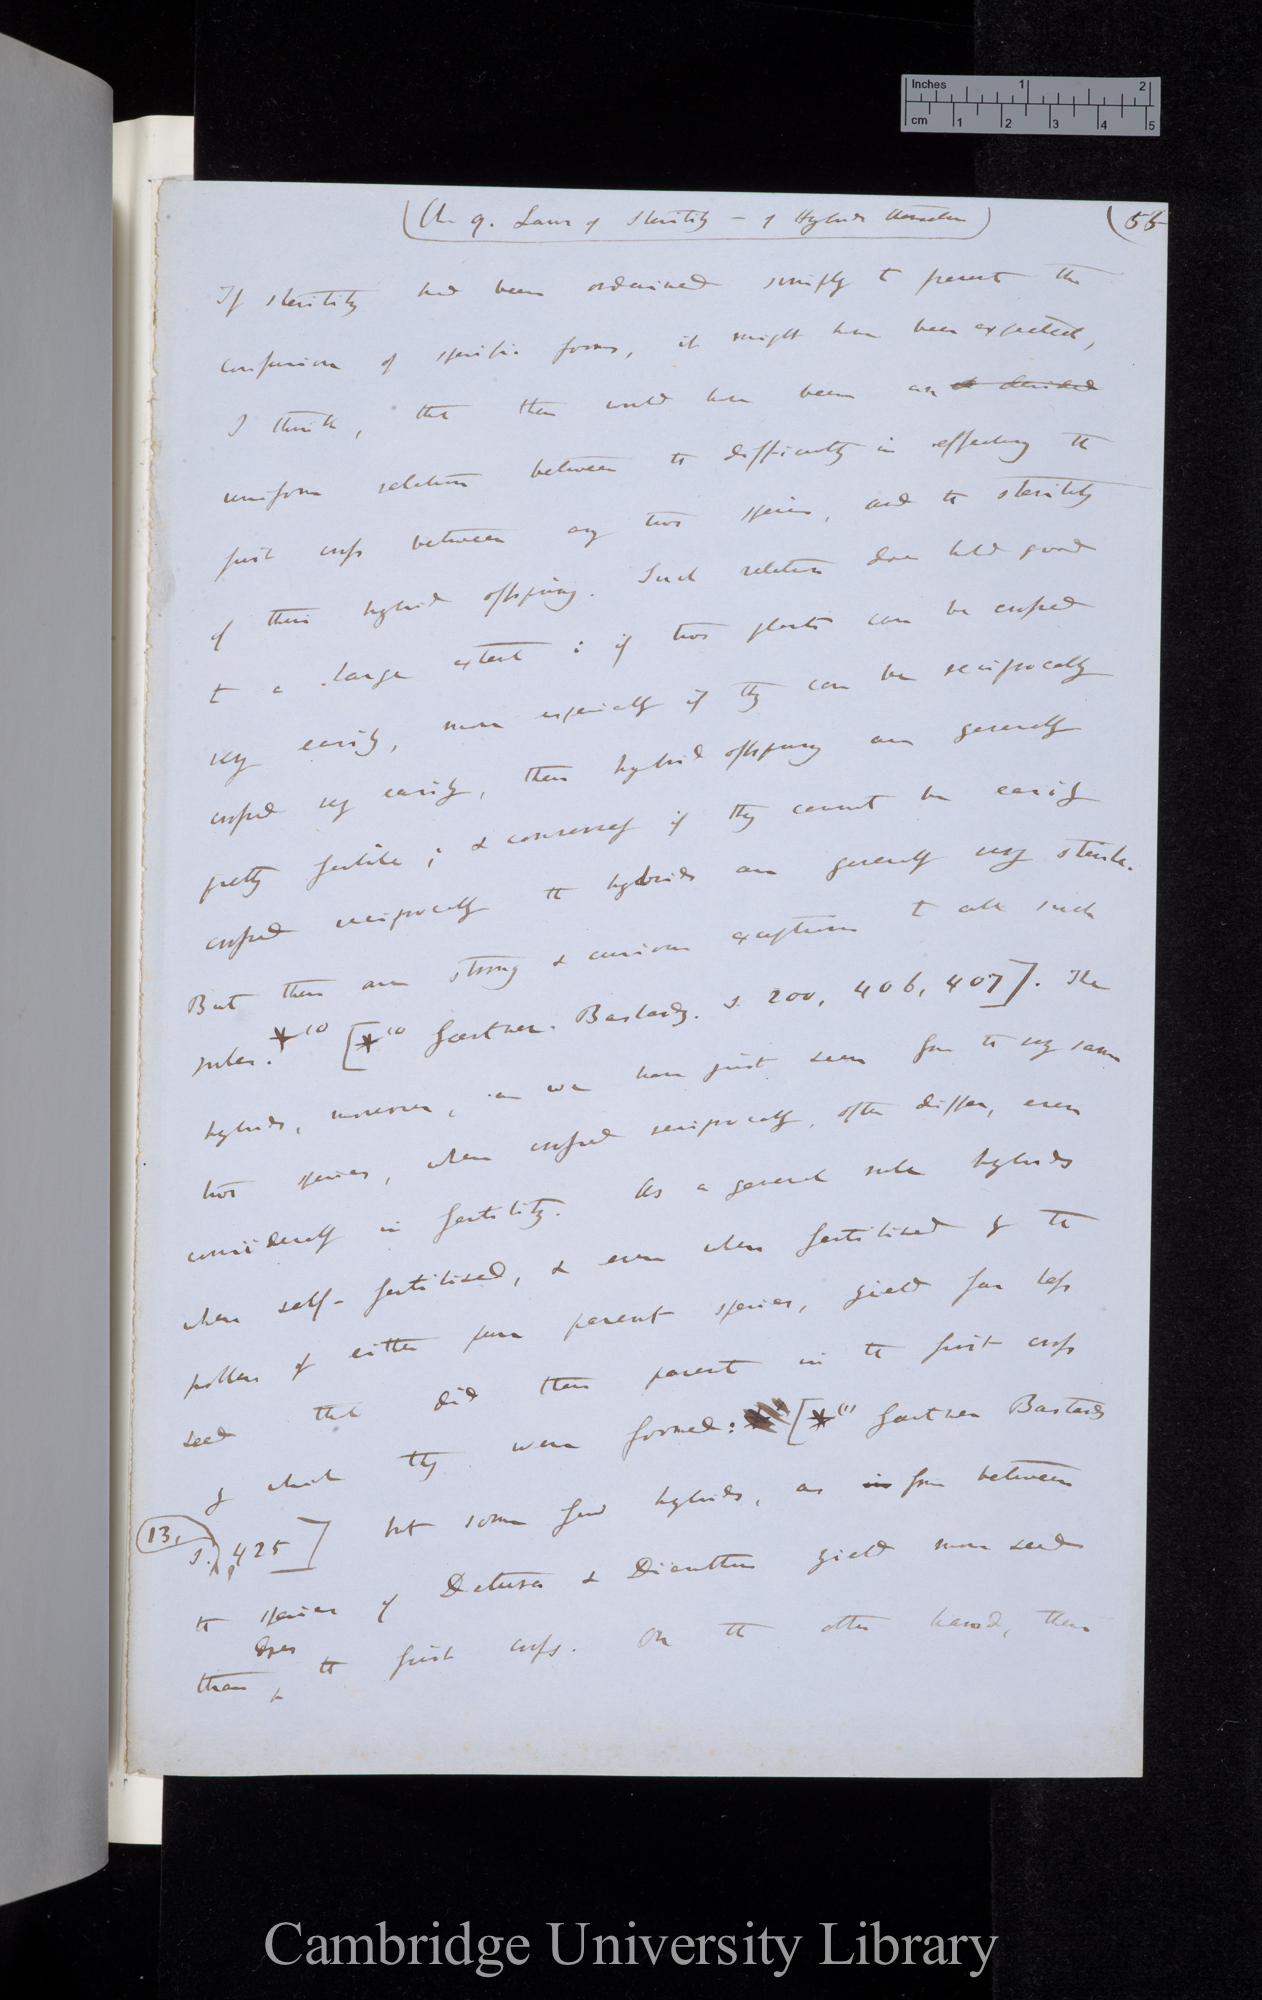 Inches 1 2
cm 1 2 3 4 5
(Ch 9. Laws of Sterility — of Hybrids (55
If sterility had been ordained simply to prevent the
confusion of specific forms, it might have been expected,
I think, that there would have been an
uniform relation between the difficulty in effecting the
first cross between any two species, and the sterility
of their hybrid offspring. Such relation does hold good
to a large extent: if two plants can be crossed
very easily, more especially if they can be reciprocally
crossed very easily, their hybrid offspring are generally
pretty fertile; & conversely if they cannot be easily
crossed reciprocally the hybrids are generally very sterile.
But there are strong & curious exceptions to all such
rules.*10 [*10 Gærtner. Bastardz. s. 200, 406, 407]. The
hybrids, moreover, as we have just seen from the very same
two species, when crossed reciprocally, often differ, even
considerably in fertility. As a general rule hybrids
when self-fertilised, & even when fertilised by the
pollen of either pure parent species, yield far less
seed than did their parent in the first cross
by which they were formed: [*11 Gærtner Bastardz
13, s. 425] but some few hybrids, as in from between
the species of Datura & Dianthus yield more seed
than does the first cross. On the other hand, there
Cambridge University Library